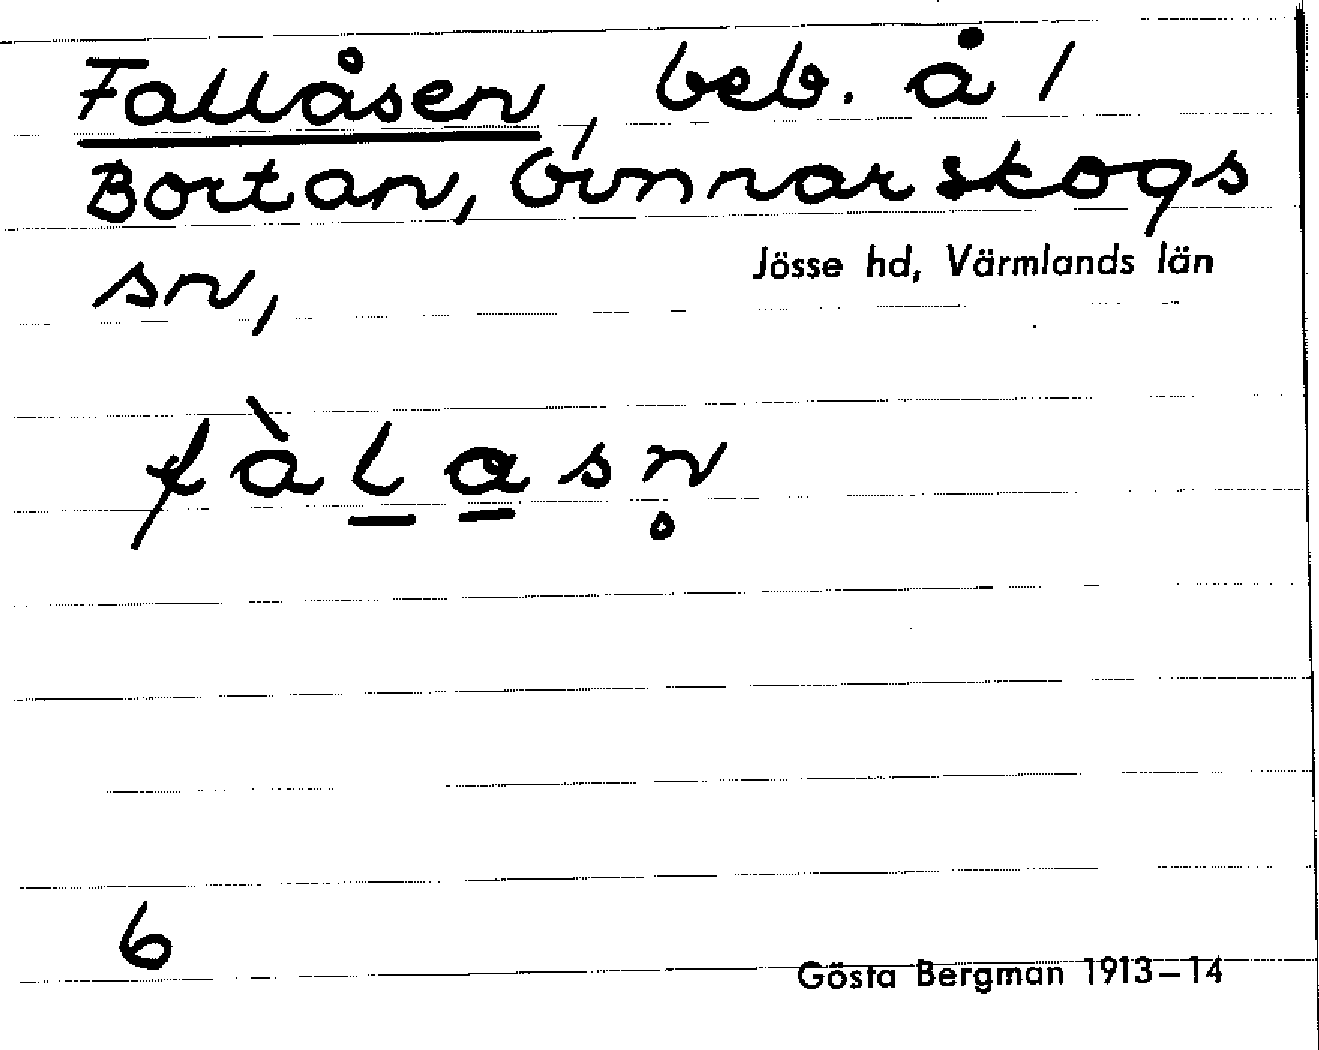 Fallåsen, beb. å /
Bortan, Gunnarskogs
sn,
Jösse hd, Värmlands län
fàl̲a̲sn̥
6
Gösta Bergman 1913–14